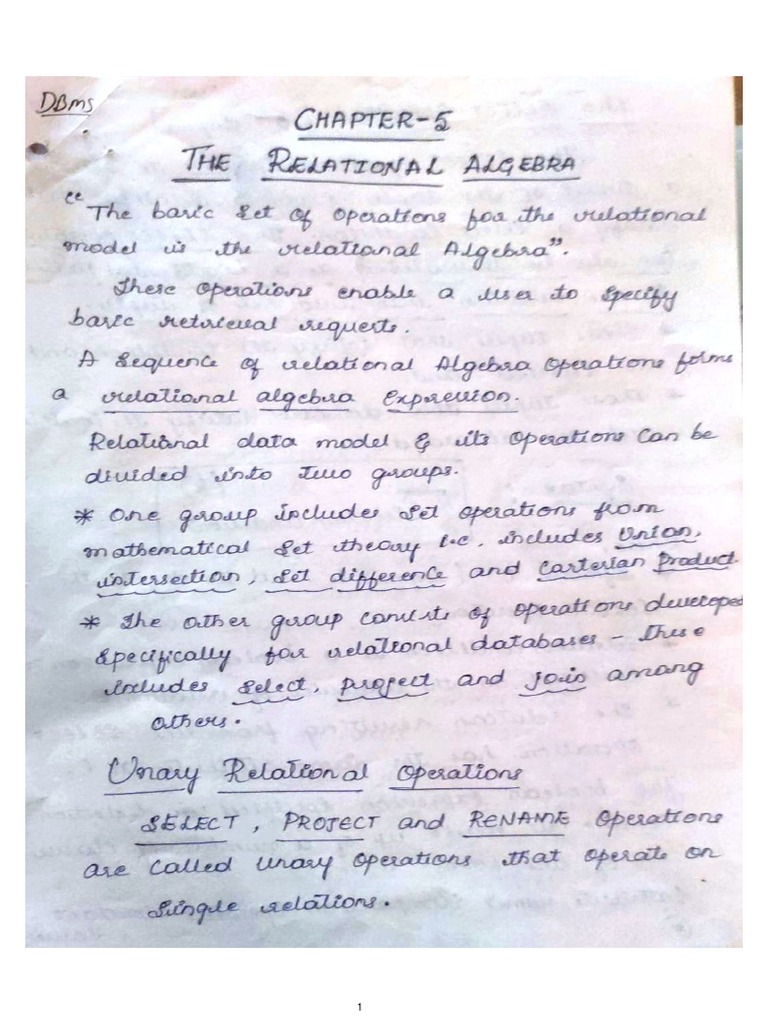 DBMS
CHAPTER-5
THE RELATIONAL ALGEBRA
"The basic set of operations for the relational
model is the relational Algebra".
These operations enable a user to specify
basic retrieval requests.
A sequence of relational Algebra operations forms
a relational algebra expression.
Relational data model & its operations can be
divided into two groups.
* One group includes set operations from
mathematical set theory i.e. includes Union,
intersection, set difference and Cartesian Product.
* The other group consists of operations developed
specifically for relational databases - these
includes select, project and join among
others.
Unary Relational Operations
SELECT, PROJECT and RENAME operations
are called unary operations that operate on
single relations.
1